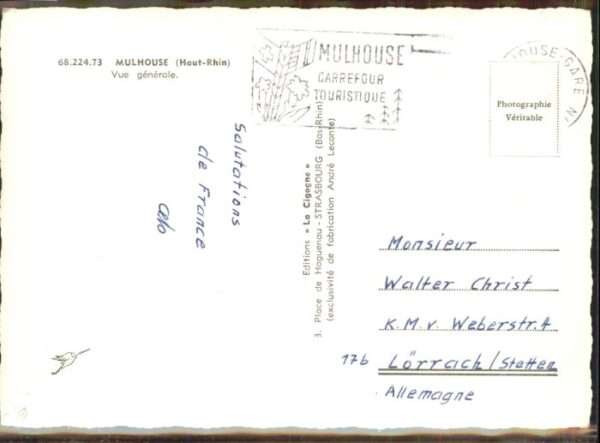 68.224.73 MULHOUSE (Haut-Rhin)
Vue générale.
MULHOUSE
CARREFOUR
TOURISTIQUE
MULHOUSE-GARE
Photographie
Véritable
Salutations
de France
Editions « La Cigogne »
3, Place de Haguenau - STRASBOURG (Bas-Rhin)
(exclusivité de fabrication André Leconte)
Monsieur
Walter Christ
K.M.v. Weberstr. 4
17b Lörrach/Stetten
Allemagne